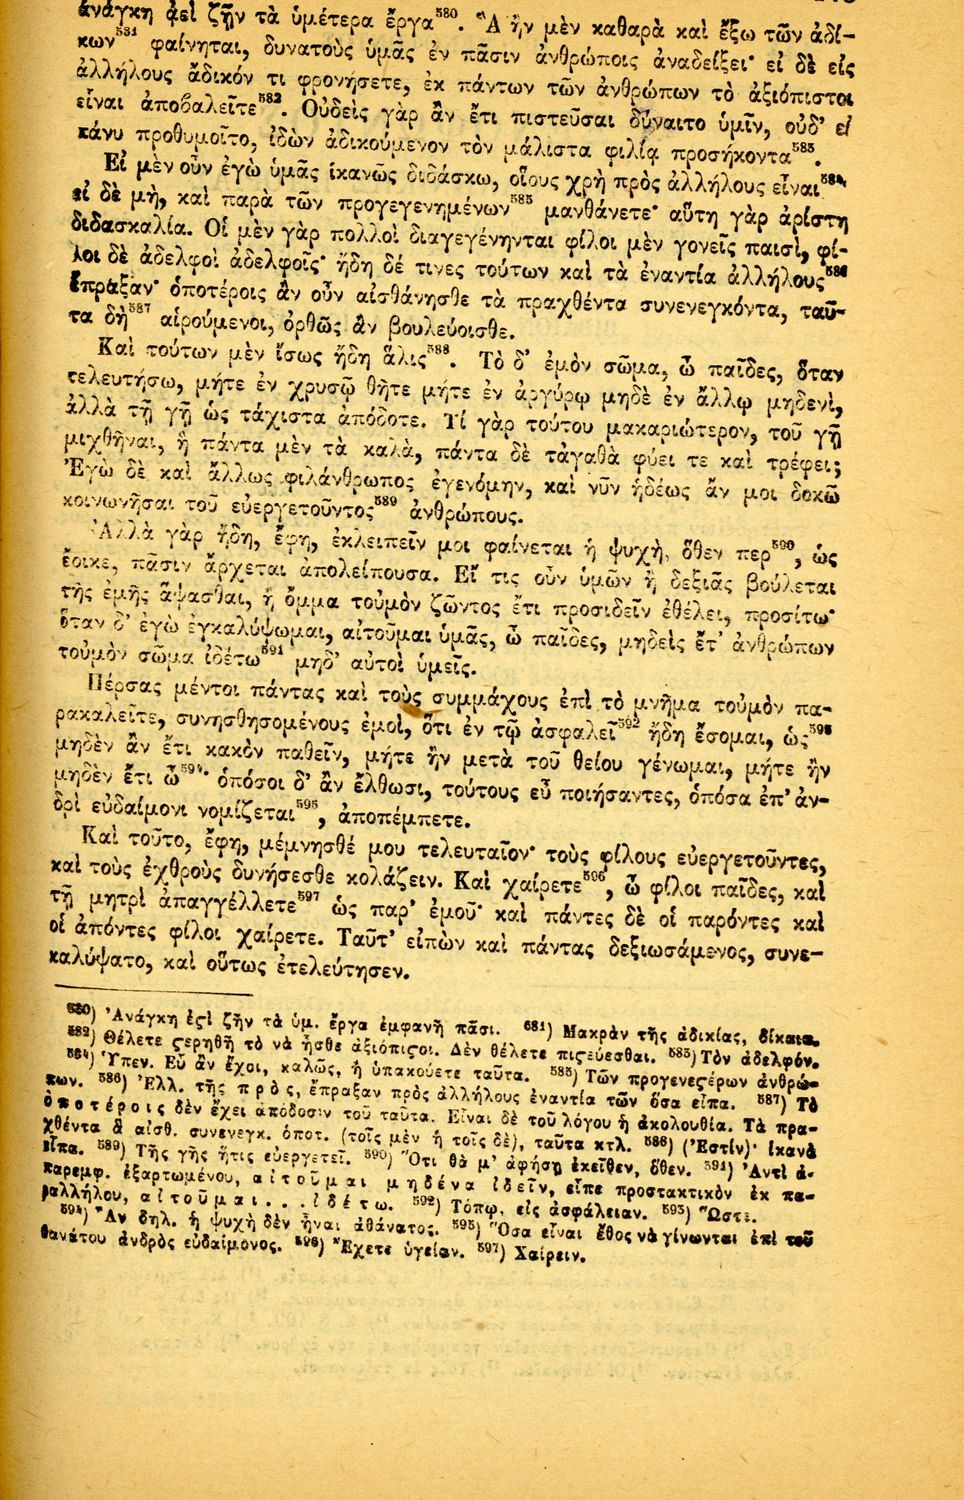 ἀνάγκη ἀεὶ ζῆν τὰ ὑμέτερα ἔργα⁵⁸⁰. Ἃ ἢν μὲν καθαρὰ καὶ ἔξω τῶν ἀδί-
κων⁵³¹ φαίνηται, δυνατοὺς ὑμᾶς ἐν πᾶσιν ἀνθρώποις ἀναδείξει· εἰ δὲ εἰς
ἀλλήλους ἄδικόν τι φρονήσετε, ἐκ πάντων τῶν ἀνθρώπων τὸ ἀξιόπιστοι
εἶναι ἀποβαλεῖτε⁵⁸². Οὐδεὶς γὰρ ἂν ἔτι πιστεῦσαι δύναιτο ὑμῖν, οὐδ' εἰ
πάνυ προθυμοῖτο, ἰδὼν ἀδικούμενον τὸν μάλιστα φιλίᾳ προσήκοντα⁵⁸³.
Εἰ μὲν οὖν ἐγὼ ὑμᾶς ἱκανῶς διδάσκω, οἵους χρὴ πρὸς ἀλλήλους εἶναι⁵⁸⁴·
εἰ δὲ μὴ, καὶ παρὰ τῶν προγεγενημένων⁵⁸⁵ μανθάνετε· αὕτη γὰρ ἀρίστη
διδασκαλία. Οἱ μὲν γὰρ πολλοὶ διαγεγένηνται φίλοι μὲν γονεῖς παισὶ, φί-
λοι δὲ ἀδελφοὶ ἀδελφοῖς· ἤδη δέ τινες τούτων καὶ τὰ ἐναντία ἀλλήλους⁵⁸⁶
ἔπραξαν· ὁποτέροις ἂν οὖν αἰσθάνησθε τὰ πραχθέντα συνενεγκόντα, ταῦ-
τα δὴ⁵⁸⁷ αἱρούμενοι, ὀρθῶς ἂν βουλεύοισθε.
Καὶ τούτων μὲν ἴσως ἤδη ἅλις⁵⁸⁸. Τὸ δ' ἐμὸν σῶμα, ὦ παῖδες, ὅταν
τελευτήσω, μήτε ἐν χρυσῷ θῆτε μήτε ἐν ἀργύρῳ μηδὲ ἐν ἄλλῳ μηδενὶ,
ἀλλὰ τῇ γῇ ὡς τάχιστα ἀπόδοτε. Τί γὰρ τούτου μακαριώτερον, τοῦ γῇ
μιχθῆναι, ἣ πάντα μὲν τὰ καλὰ, πάντα δὲ τἀγαθὰ φύει τε καὶ τρέφει;
Ἐγὼ δὲ καὶ ἄλλως φιλάνθρωπος ἐγενόμην, καὶ νῦν ἡδέως ἄν μοι δοκῶ
κοινωνῆσαι τοῦ εὐεργετοῦντος⁵⁸⁹ ἀνθρώπους.
Ἀλλὰ γὰρ ἤδη, ἔφη, ἐκλειπεῖν μοι φαίνεται ἡ ψυχὴ, ὅθεν περ⁵⁹⁰, ὡς
ἔοικε, πᾶσιν ἄρχεται ἀπολείπουσα. Εἴ τις οὖν ὑμῶν ἢ δεξιᾶς βούλεται
τῆς ἐμῆς ἅψασθαι, ἢ ὄμμα τοὐμὸν ζῶντος ἔτι προσιδεῖν ἐθέλει, προσίτω·
ὅταν δ' ἐγὼ ἐγκαλύψωμαι, αἰτοῦμαι ὑμᾶς, ὦ παῖδες, μηδεὶς ἔτ' ἀνθρώπων
τοὐμὸν σῶμα ἰδέτω⁵⁹¹ μηδ' αὐτοὶ ὑμεῖς.
Πέρσας μέντοι πάντας καὶ τοὺς συμμάχους ἐπὶ τὸ μνῆμα τοὐμὸν πα-
ρακαλεῖτε, συνησθησομένους ἐμοὶ, ὅτι ἐν τῷ ἀσφαλεῖ⁵⁹² ἤδη ἔσομαι, ὡς⁵⁹³
μηδὲν ἂν ἔτι κακὸν παθεῖν, μήτε ἢν μετὰ τοῦ θείου γένωμαι, μήτε ἢν
μηδὲν ἔτι ὦ⁵⁹⁴· ὁπόσοι δ' ἂν ἔλθωσι, τούτους εὖ ποιήσαντες, ὁπόσα ἐπ' ἀν-
δρὶ εὐδαίμονι νομίζεται⁵⁹⁵, ἀποπέμπετε.
Καὶ τοῦτο, ἔφη, μέμνησθέ μου τελευταῖον· τοὺς φίλους εὐεργετοῦντες,
καὶ τοὺς ἐχθροὺς δυνήσεσθε κολάζειν. Καὶ χαίρετε⁵⁹⁶, ὦ φίλοι παῖδες, καὶ
τῇ μητρὶ ἀπαγγέλλετε⁵⁹⁷ ὡς παρ' ἐμοῦ· καὶ πάντες δὲ οἱ παρόντες καὶ
οἱ ἀπόντες φίλοι χαίρετε. Ταῦτ' εἰπὼν καὶ πάντας δεξιωσάμενος, συνε-
καλύψατο, καὶ οὕτως ἐτελεύτησεν.
⁵⁸⁰) Ἀνάγκη ἐϛὶ ζῆν τὰ ὑμ. ἔργα ἐμφανῆ πᾶσι. ⁶⁸¹) Μακρὰν τῆς ἀδικίας, δίκαια.
⁵⁸²) Θέλετε ϛερηθῆ τὸ νὰ ἦσθε ἀξιόπιϛοι. Δὲν θέλετε πιϛεύεσθαι. ⁵⁸³) Τὸν ἀδελφόν.
⁵⁸⁴) Ὑπεν. Εὖ ἂν ἔχοι, καλῶς, ἢ ὑπακούετε ταῦτα. ⁵⁸⁵) Τῶν προγενεϛέρων ἀνθρώ-
πων. ⁵⁸⁶) Ἐλλ. τῆς πρὸς, ἔπραξαν πρὸς ἀλλήλους ἐναντία τῶν ὅσα εἶπα. ⁵⁸⁷) Τὸ
ὁποτέροις δὲν ἔχει ἀπόδοσιν τοῦ ταῦτα. Εἶναι δὲ τοῦ λόγου ἡ ἀκολουθία. Τὰ πρα-
χθέντα ἃ αἰσθ. συνενεγκ. ὁποτ. (τοῖς μὲν ἢ τοῖς δὲ), ταῦτα κτλ. ⁵⁸⁸) (Ἐστίν)· ἱκανὰ
εἶπα. ⁵⁸⁹) Τῆς γῆς ἥτις εὐεργετεῖ. ⁵⁹⁰) Ὅτι θὰ μ' ἀφήσῃ ἐκεῖθεν, ὅθεν. ⁵⁹¹) Ἀντὶ ἀ-
παρεμφ. ἐξαρτωμένου, αἰτοῦμαι μηδένα ἰδεῖν, εἶπε προστακτικὸν ἐκ πα-
ραλλήλου, αἰτοῦμαι... ἰδέτω. ⁵⁹²) Τόπῳ, εἰς ἀσφάλειαν. ⁵⁹³) Ὥστε.
⁵⁹⁴) Ἂν δηλ. ἡ ψυχὴ δὲν ᾖναι ἀθάνατος. ⁵⁹⁵) Ὅσα εἶναι ἔθος νὰ γίνωνται ἐπὶ τοῦ
θανάτου ἀνδρὸς εὐδαίμονος. ⁵⁹⁶) Ἔχετε ὑγείαν. ⁵⁹⁷) Χαίρειν.